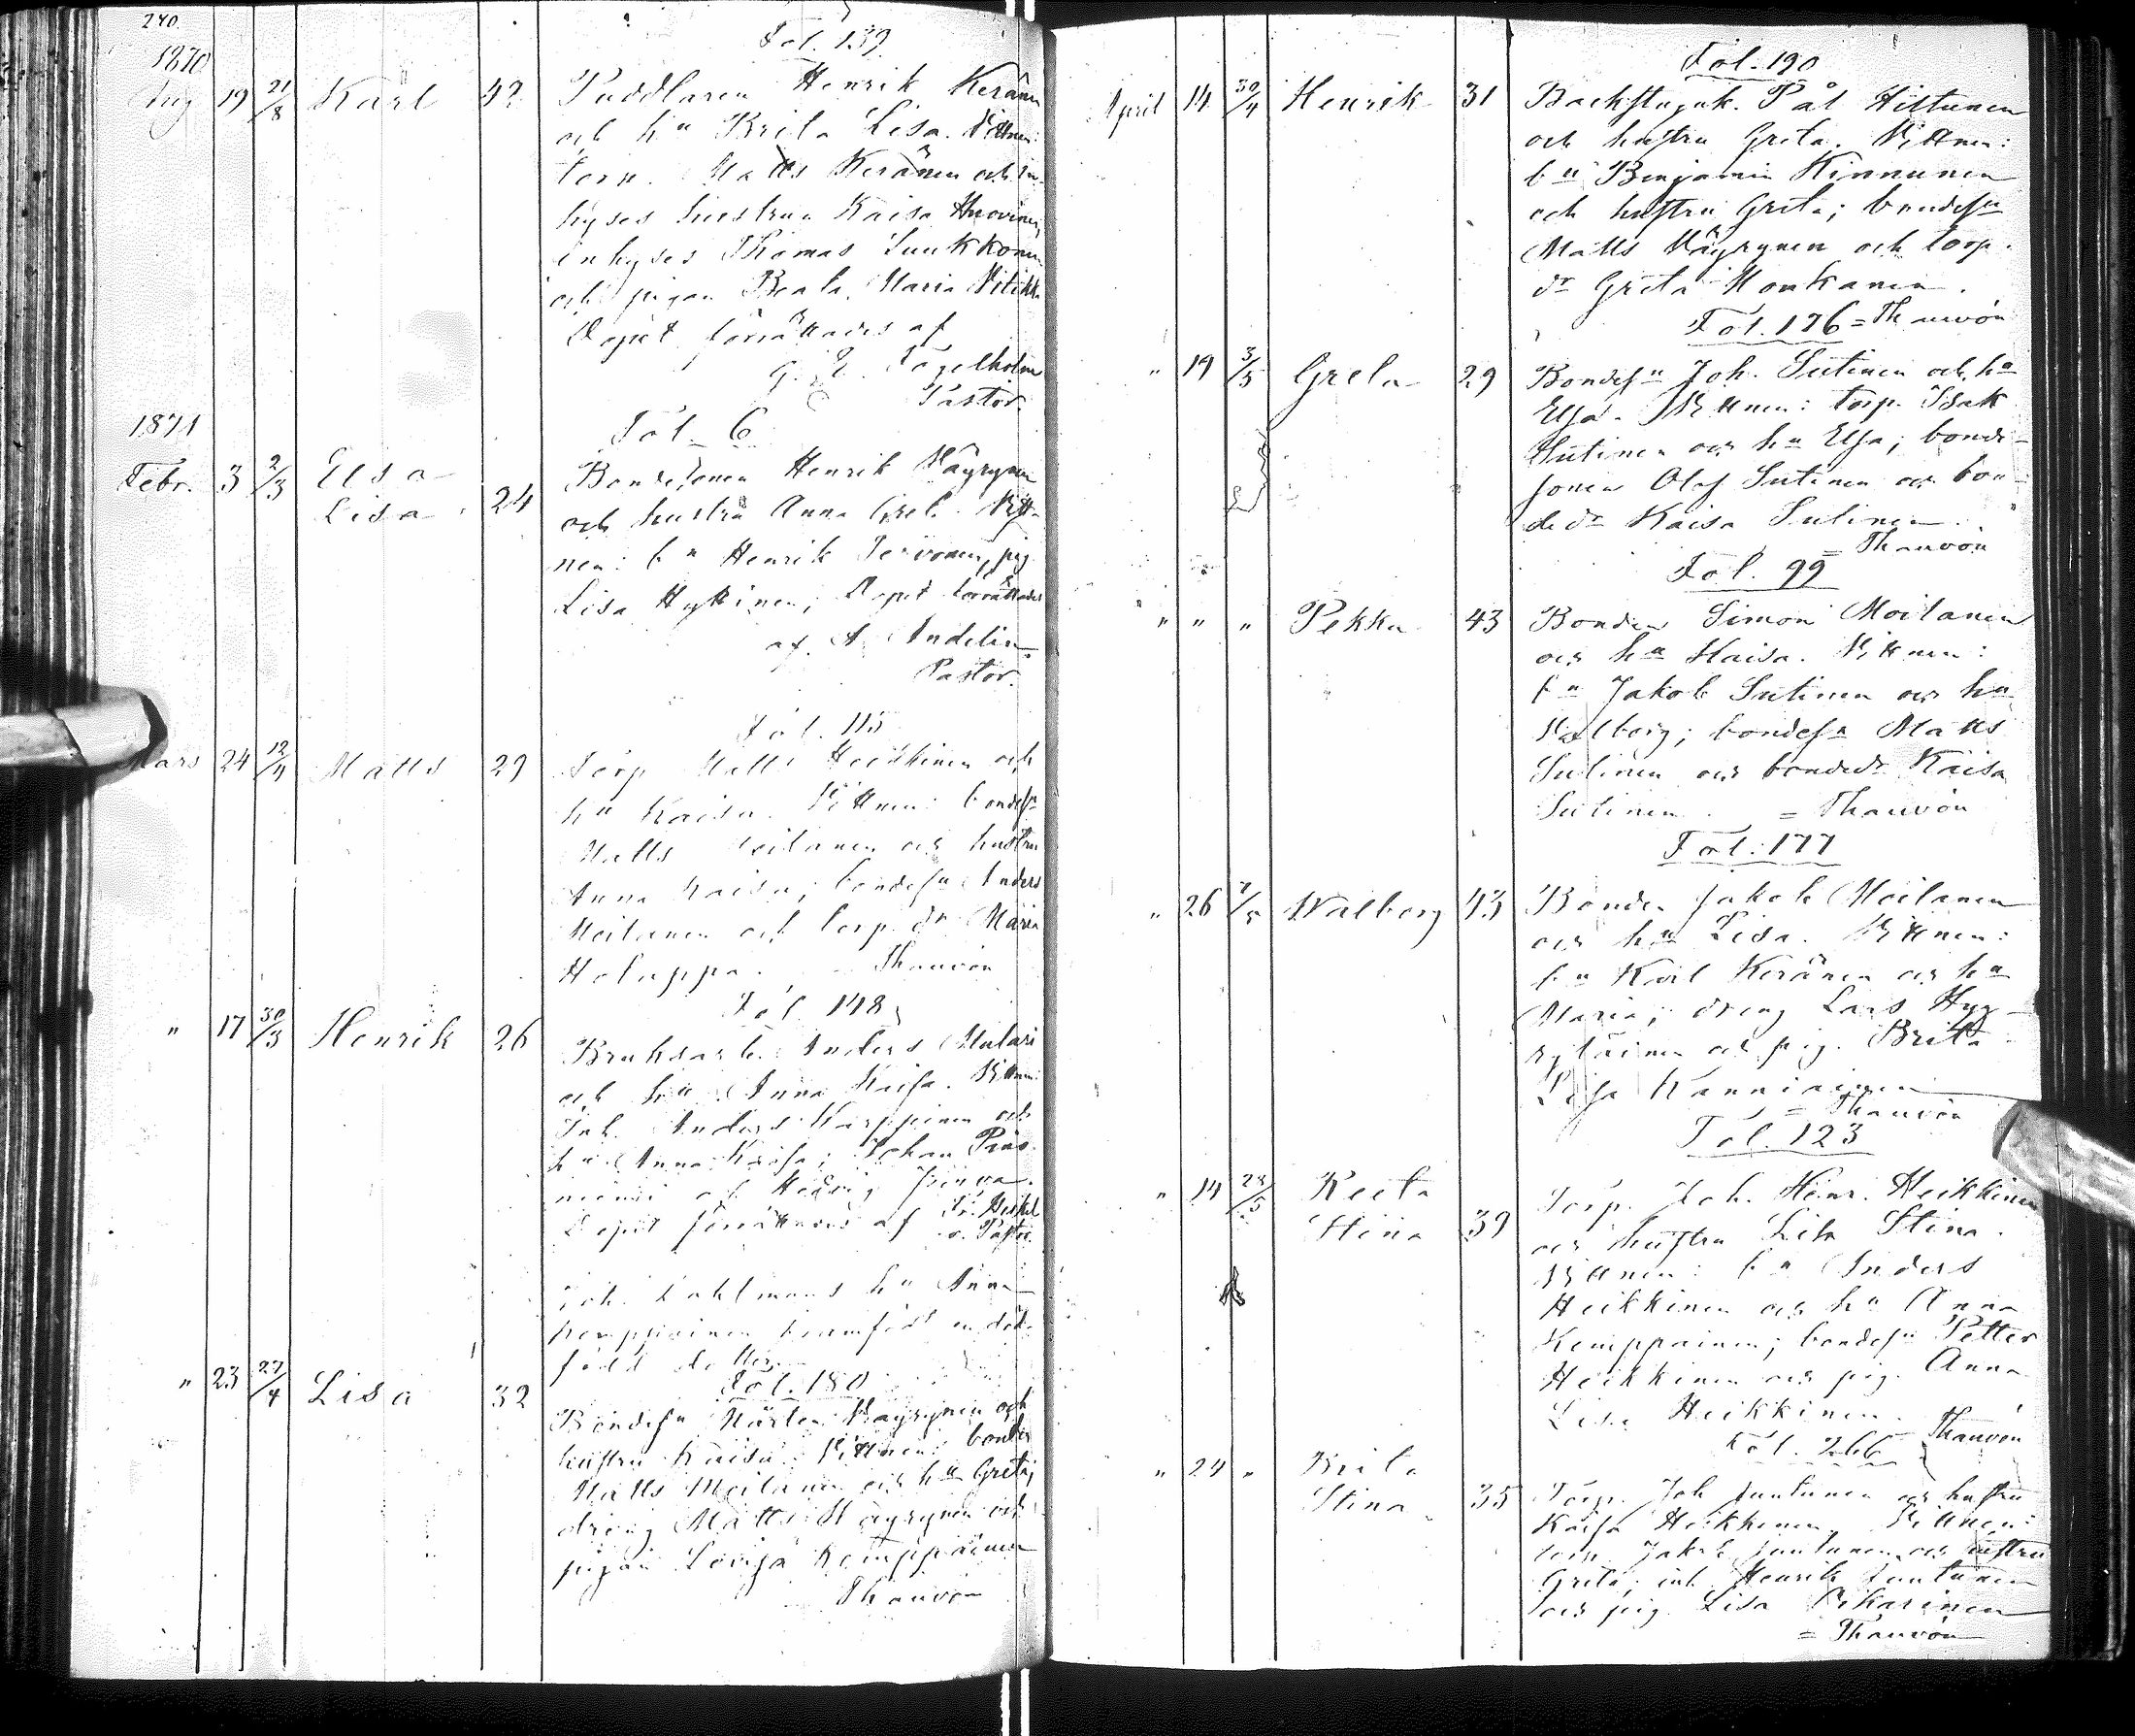 240.
Fol. 139.
1870
Aug 19 21/8 Karl 42 Puddlaren Henrik Keränen
och hu Brita Lisa. Vittnen:
torp. Matts Keränen och in-
hyses hustrun Kaisa Huovinen,
inhyses Thomas Luukkonen
och pigan Beata Maria
Dopet förrättades af
G. E. Fogelholm
Pastor.
1871
Fol. 6
Febr. 3 2/3 Elsa Bondesonen Henrik Väyrynen
Lisa 24 och hustru Anna Greta. Vitt-
nen: bn Henrik Tervonen, pig.
Lisa Hyttinen; Dopet förrättades
af A. Andelin
Pastor.
Fol. 115
Mars 24 12/4 Matts 29 Torp. Matts Heikkinen och
hu Kaisa. Vittnen: bondesn
Matts Moilanen och hustru
Anna Kaisa; bondesn Anders
Moilanen och torp. dr Maria
Holappa. Thauvón
Fol. 148
" 17 30/3 Henrik 26 Bruksarb. Anders Mulari
och hu Anna Kaisa. Vittnen:
Inh. Anders Karppinen och
hu Anna Kaisa; Johan
niemi och Hedvig
Dopet förrättades af
v. Pastor.
Joh. Dahlmans hu Anna
Kemppainen framfödt en död-
född dotter.
Fol. 180
" 23 27/4 Lisa 32 Bondesn Mårten Väyrynen och
hustru Kaisa. Vittnen: bonden
Matts Moilanen och hu Greta;
dreng Matts Väyrynen och
pigan Lovisa Kemppainen
Thauvón
Fol. 190
April 14 30/4 Henrik 31 Backstuguk. Pål Hiltunen
och hustru Greta. Vittnen:
bn Benjamin Kinnunen
och hustru Greta; bondesn
Matts Väyrynen och torp.
dr Greta Moukanen.
Fol. 176 = Thauvón
" 19 3/5 Greta 29 Bondesn Joh. Sutinen och hu
Elsa. Vittnen: torp. Isak
Sutinen och hu Elsa; bonde-
sonen Olof Sutinen och bon-
dedr Kaisa Sutinen.
= Thauvón
Fol. 99
" " " Pekka 43 Bonden Simon Moilanen
och hu Kaisa. Vittnen:
bn Jakob Sutinen och hu
Valborg; bondesn Matts
Sutinen och bondedr Kaisa
Sutinen. = Thauvón
Fol. 177
" 26 7/5 Walborg 43 Bonden Jakob Moilanen
och hu Lisa. Vittnen:
bn Karl Keränen och hu
Maria; dreng Lars Hyy-
ryläinen och pig. Brita
Lisa Kanniainen
= Thauvón
Fol. 123
" 14 28/5 Reeta Torp. Joh. Henr. Heikkinen
Stina 39 och hustru Lisa Stina.
Vittnen: bn Anders
Heikkinen och hu Anna
Kemppainen; bondesn Petter
Heikkinen och pig. Anna
Lisa Heikkinen.
Fol. 266 Thauvón
" 24 " Brita
Stina 35 Torp. Joh. Juntunen och hustru
Kaisa Heikkinen. Vittnen:
torp. Jakob Juntunen och hustru
Greta; inh. Henrik Juntunen
och pig. Lisa Pikarinen
= Thauvón